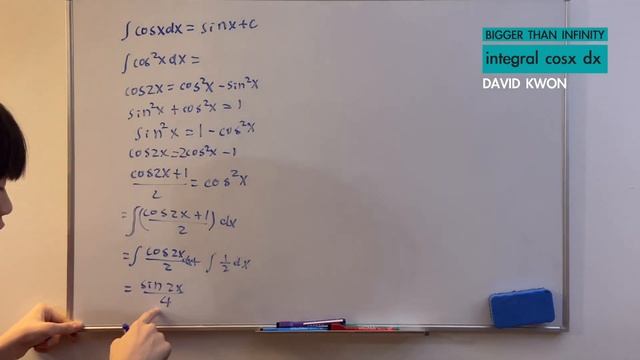 ∫cosxdx = sinx+c
∫cos²xdx =
cos2x = cos²x - sin²x
sin²x + cos²x = 1
sin²x = 1 - cos²x
cos2x = 2cos²x - 1
(cos2x+1)/2 = cos²x
= ∫((cos2x+1)/2) dx
= ∫(cos2x)/2 dx+ ∫ 1/2 dx
= (sin2x)/4
BIGGER THAN INFINITY
integral cosx dx
DAVID KWON